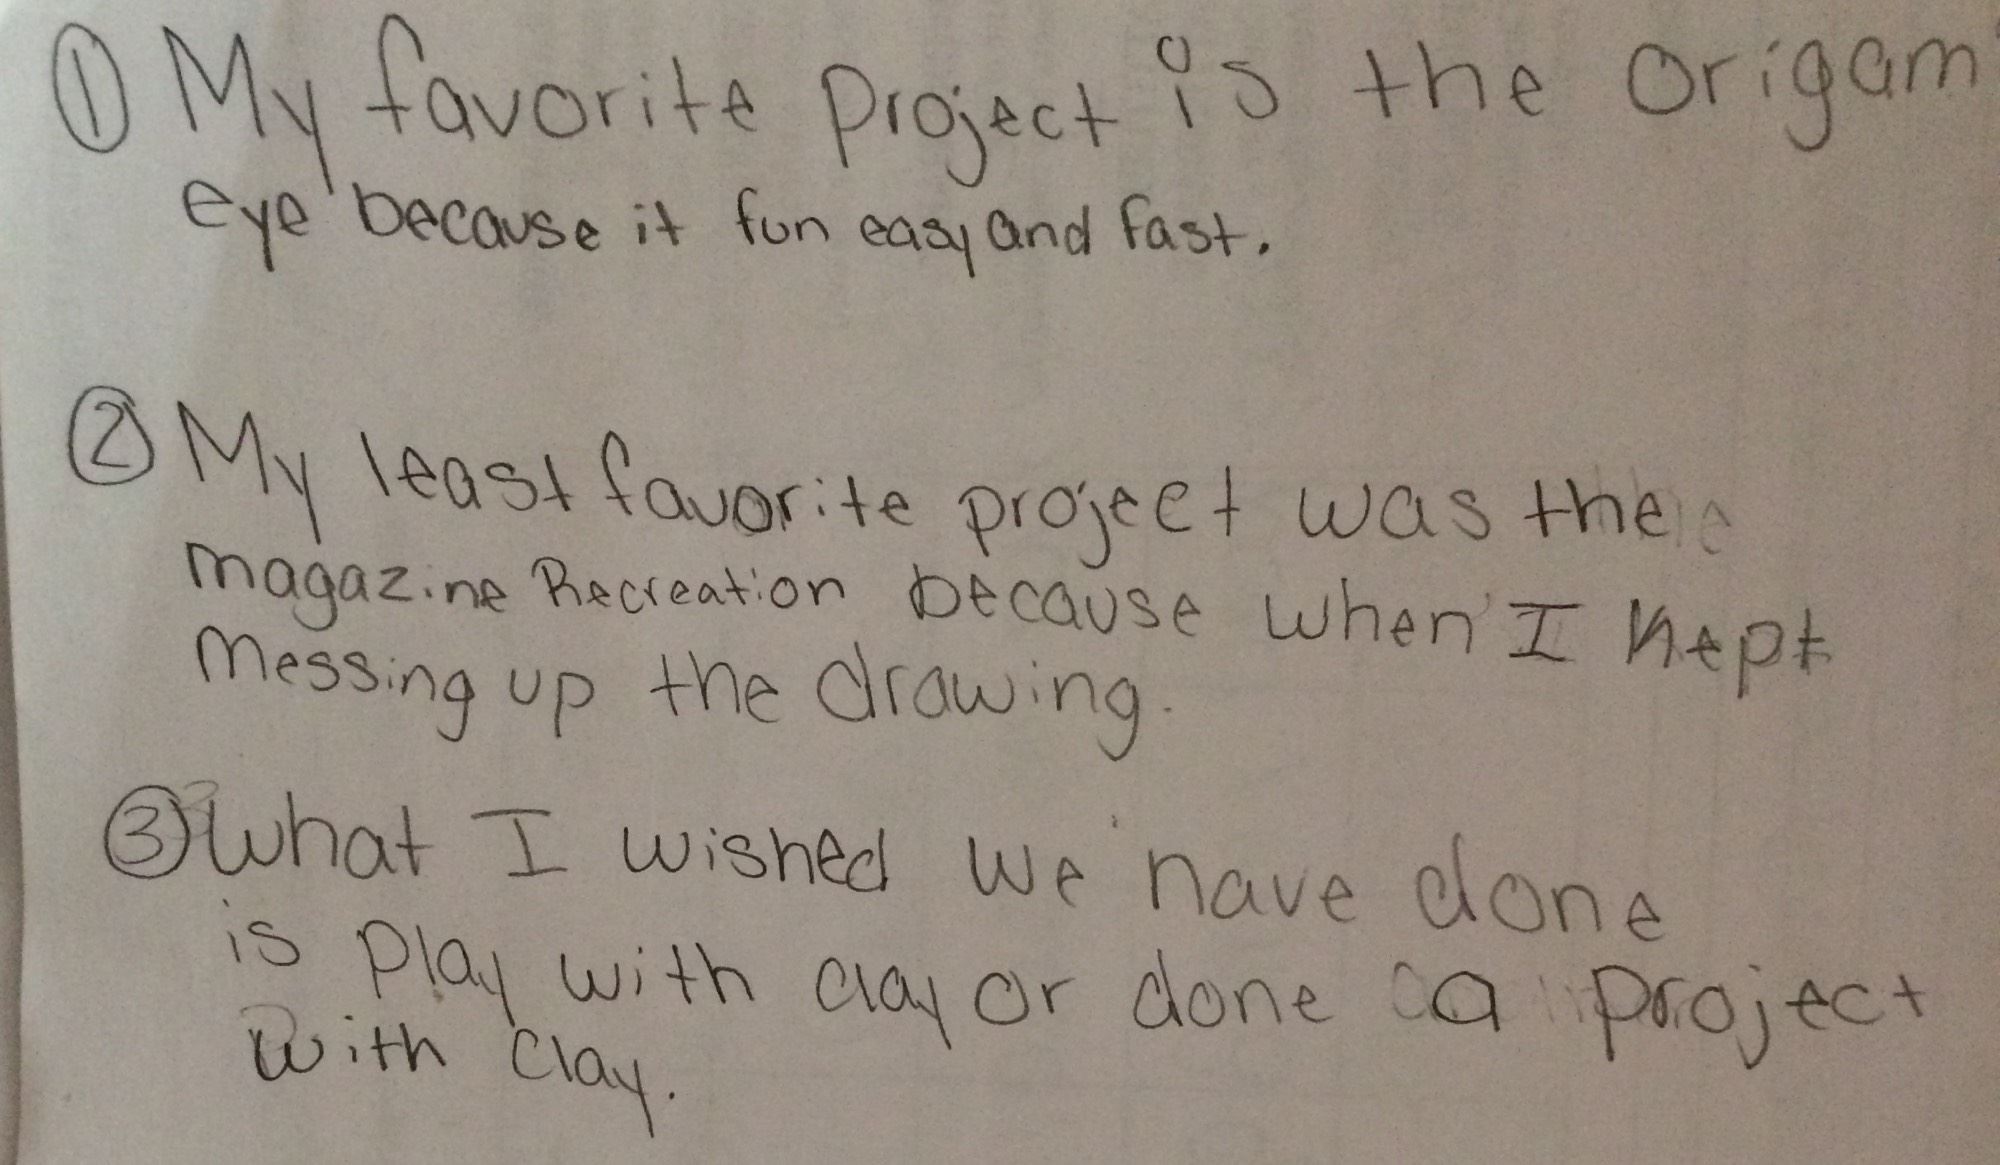 ① My favorite project is the origami
eye because it fun easy and fast.
② My least favorite project was the
magazine Recreation because when I kept
Messing up the drawing.
③ What I wished we have done
is play with clay or done a project
with clay.